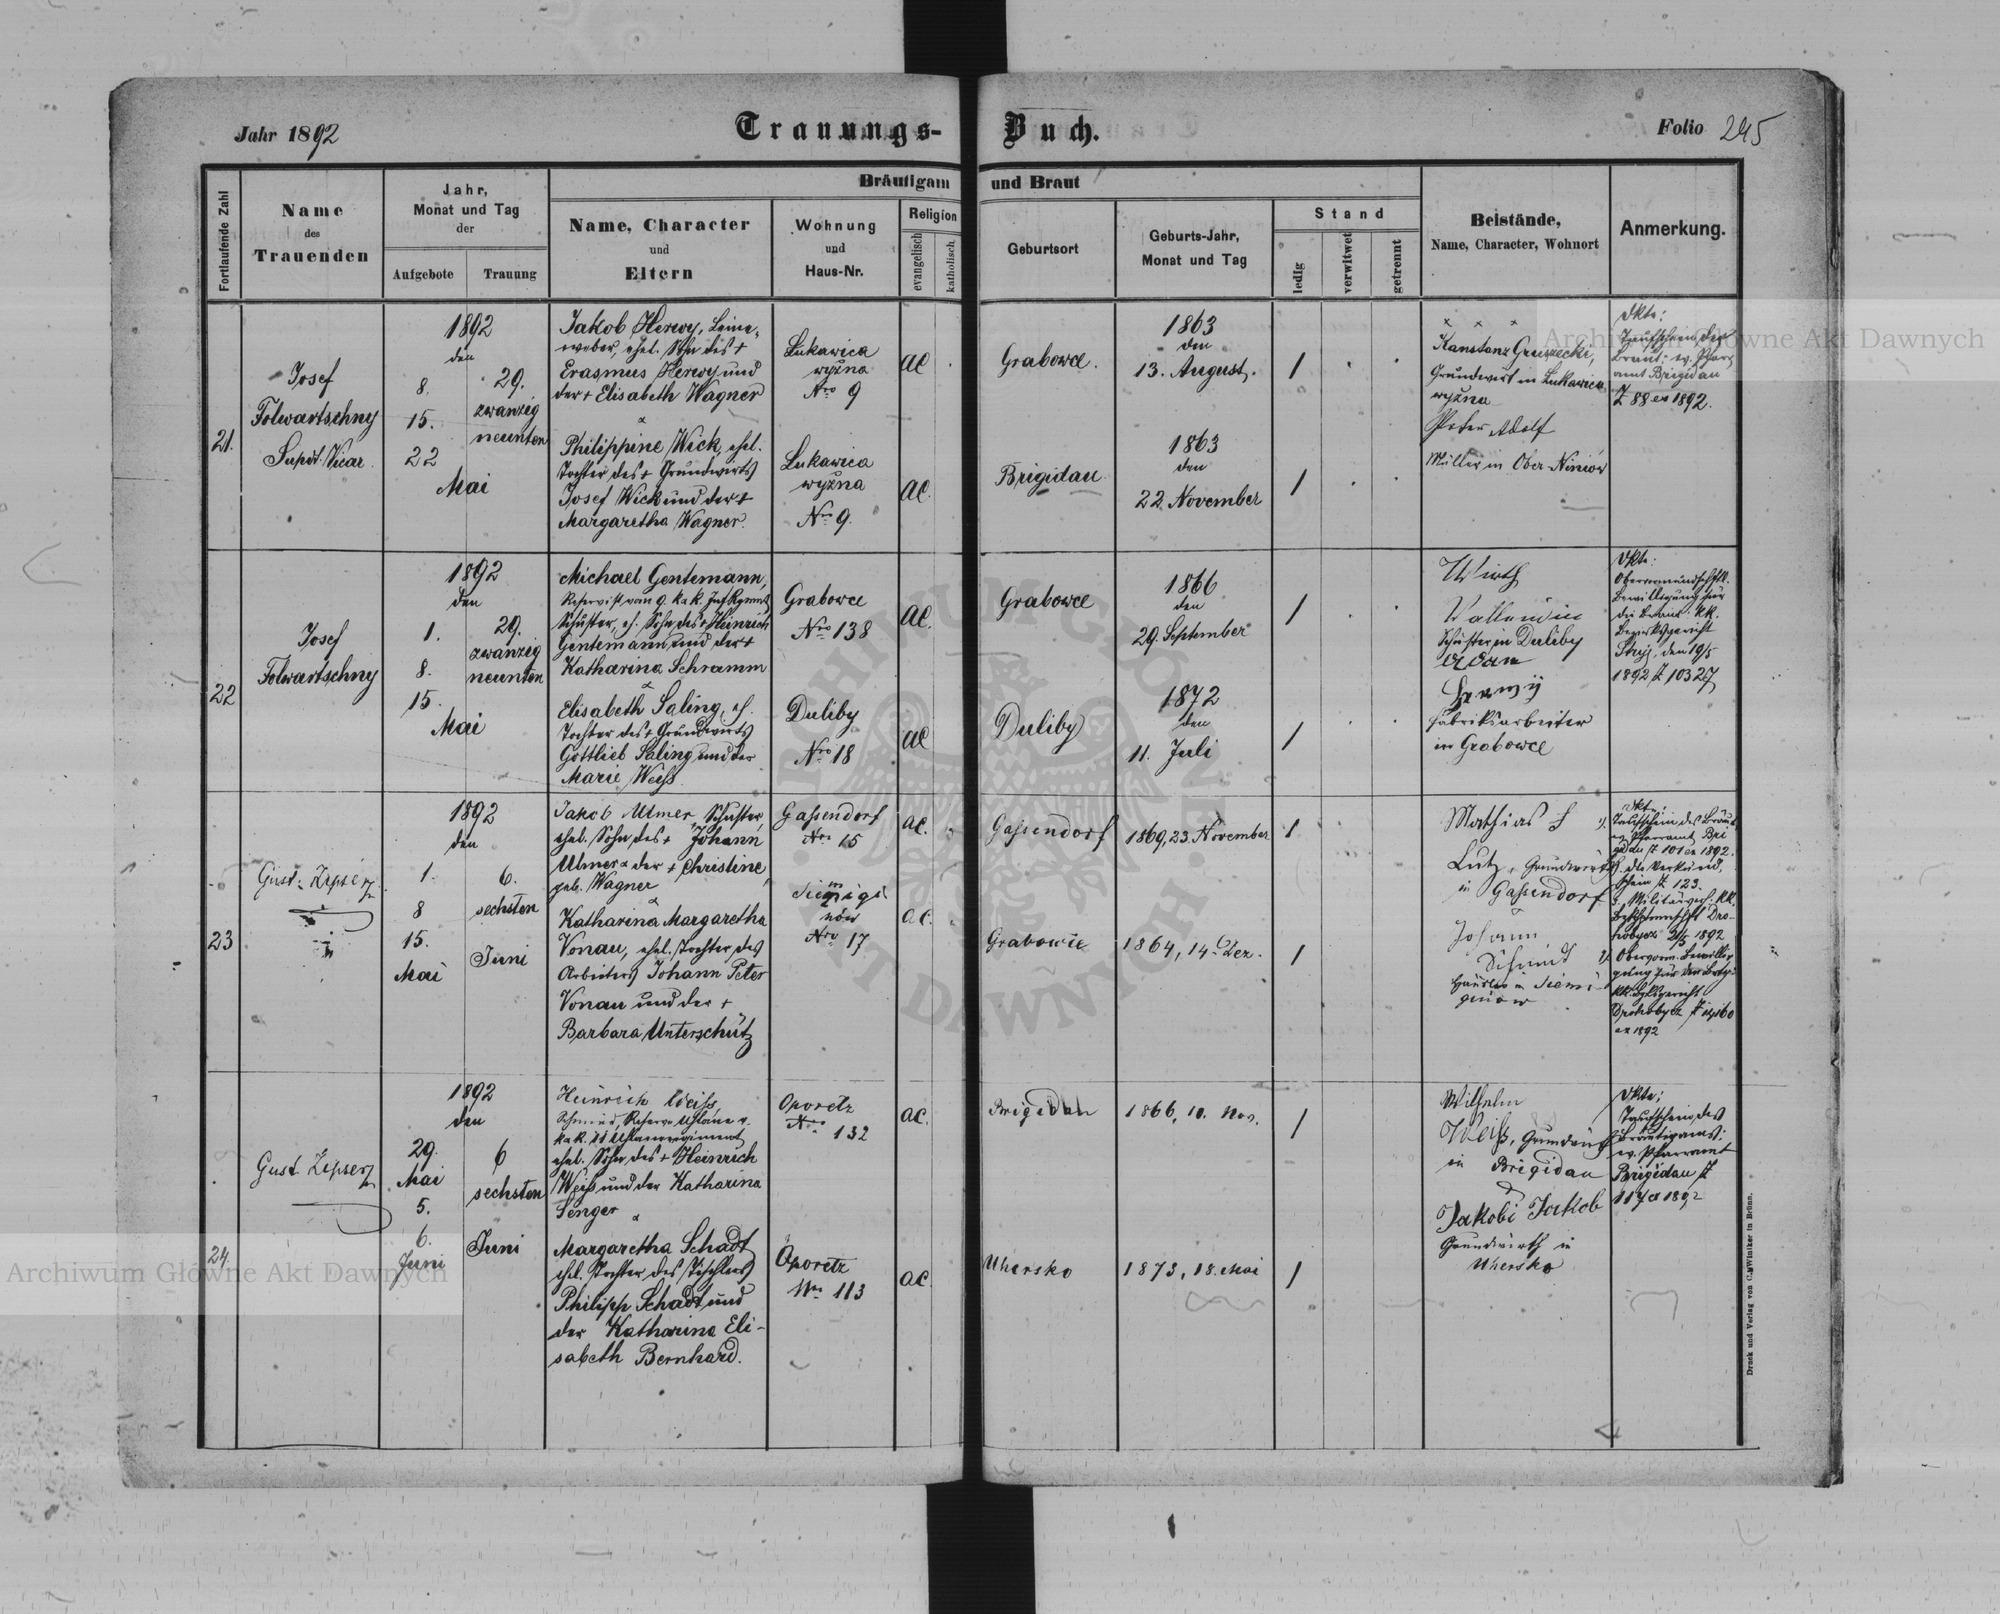 Jahr 1892
Trauungs-Buch.
Folio 245
Fortlaufende Zahl
Name
des
Trauenden
Jahr,
Monat und Tag
der
Aufgebote
Trauung
Bräutigam und Braut
Name, Character
und
Eltern
Wohnung
und
Haus-Nr.
Religion
evangelisch
katholisch.
Geburtsort
Geburts-Jahr,
Monat und Tag
Stand
ledig
verwitwet
getrennt
Beistände,
Name, Character, Wohnort
Anmerkung.
21.
Josef
Folwartschny
Supdt. Vicar.
1892
den
8.
15.
22
Mai
29.
zwanzig
neunten
Jakob Herwy, Leine-
weber, ehel. Sohn des +
Erasmus Herwy und
der + Elisabeth Wagner
&
Philippine Wick, ehel.
Tochter des + Grundwirts
Josef Wick und der +
Margaretha Wagner.
Lukawica
wyżna
Nro 9
Lukawica
wyżna
Nro 9.
AC
AC.
Grabowce.
Brigidau
1863
den
13. August.
1863
den
22. November
1
1
x x x
Konstanz Gruszecki,
Grundwirt in Lukawica
wyżna
Peter Adolf
Müller in Ober-Niniów
Dkte:
Taufschein der
Braut: ev. Pfarr
amt Brigidau
Z 88 ex 1892.
22
Josef
Folwartschny
1892
den
1.
8.
15.
Mai
29.
zwanzig
neunten
Michael Gentemann,
Reservist vom 9. k.u.k. Inf. Rgmnt,
Schuster, eh. Sohn des + Heinrich
Gentemann und der +
Katharina Schramm
&
Elisabeth Saling, eh.
Tochter des + Grundwirts
Gottlieb Saling und der
Marie Weiss
Grabowce
Nro 138
Duliby
Nro 18
AC.
AC
Grabowce
Duliby
1866
den
29. September
1872
den
11. Juli
1
1
Wirth
Schuster in Duliby
Adam
Herwÿ
Fabriksarbeiter
in Grabowce
Dkte:
Obervormundschftl.
Bewilligung für
die Braut: k.k.
Bezirksgericht
Stryj, den 19/5
1892 Z 10327
23
Gust. Zipser
1892
den
1.
8
15.
Mai
6.
sechsten
Juni
Jakob Ulmer, Schuster,
ehel. Sohn des + Johann
Ulmer & der + Christine,
geb. Wagner
&
Katharina Margaretha
Vonau, ehel. Tochter des
Arbeiters Johann Peter
Vonau und der +
Barbara Unterschütz
Gassendorf
Nro 15
Siemigi
nów
Nro 17
AC.
AC.
Gassendorf
Grabowce
1869, 23. November
1864, 14. Dez.
1
1
Mathias
Lutz, Grundwirth
in Gassendorf
Johann
Schmidt
Häusler in Siemi-
ginow
Dkte
Taufschein des Bräut.
ev. Pfarramt Bri
gidau Z 101 ex 1892.
2. die Verkünd.
schein Z. 123.
1892
Obervorm. Bewilli-
gung für den Brtg.
k.k. Bzksgericht
Drohobycz
ex 1892
24.
Gust Zipser
1892
den
29.
Mai
5.
6.
Juni
6
sechsten
Juni
Heinrich Weiss
Schmied, Reserve Uhlane v.
k.u.k. 11 Uhlanenregiment,
ehel. Sohn des + Heinrich
Weiss und der Katharina
Senger
&
Margaretha Schadt
ehel. Tochter des Tischlers
Philipp Schadt und
der Katharina Eli-
sabeth Bernhard.
Oporetz
Nro 132
Oporetz
Nro 113
AC.
AC.
Brigidau
Uhersko
1866, 10. Nov.
1873, 18. Mai
1
1
Wilhelm
Weiß, Grundwirth
in Brigidau
Jakobi Jakob
Grundwirth in
Uhersko
Dkte:
Taufschein des
Bräutigams:
ev. Pfarramt
Brigidau Z
117 ex 1892
Druck und Verlag von C. Winiker in Brünn.
Archiwum Główne Akt Dawnych
Archiwum Główne Akt Dawnych
ARCHIWUM GŁÓWNE
AKT DAWNYCH